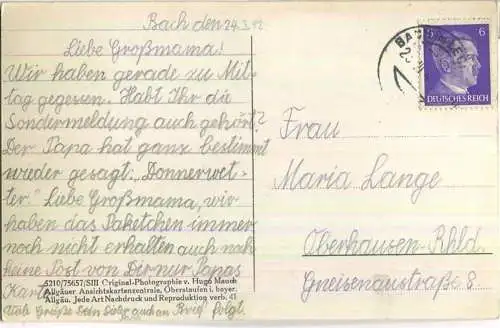 Bach den 24.3.42
Liebe Großmama!
Wir haben gerade zu Mit-
tag gegesen. Habt Ihr die
Sondermeldung auch gehört?
Der Papa hat ganz bestimmt
wieder gesagt: „Donnerwet-
ter." Liebe Großmama, wir
haben das Paketchen immer
noch nicht erhalten auch noch
keine Post von Dir nur Papas
Karte
5210/75657/SIII Original-Photographie v. Hugo Mauch
Allgäuer Ansichtskartenzentrale, Oberstaufen i. bayer.
Allgäu. Jede Art Nachdruck und Reproduktion verb. 41
Viele Grüße auch Brief folgt.
6
DEUTSCHES REICH
Frau
Maria Lange
Oberhausen-Rhld.
Gneisenaustraße 8